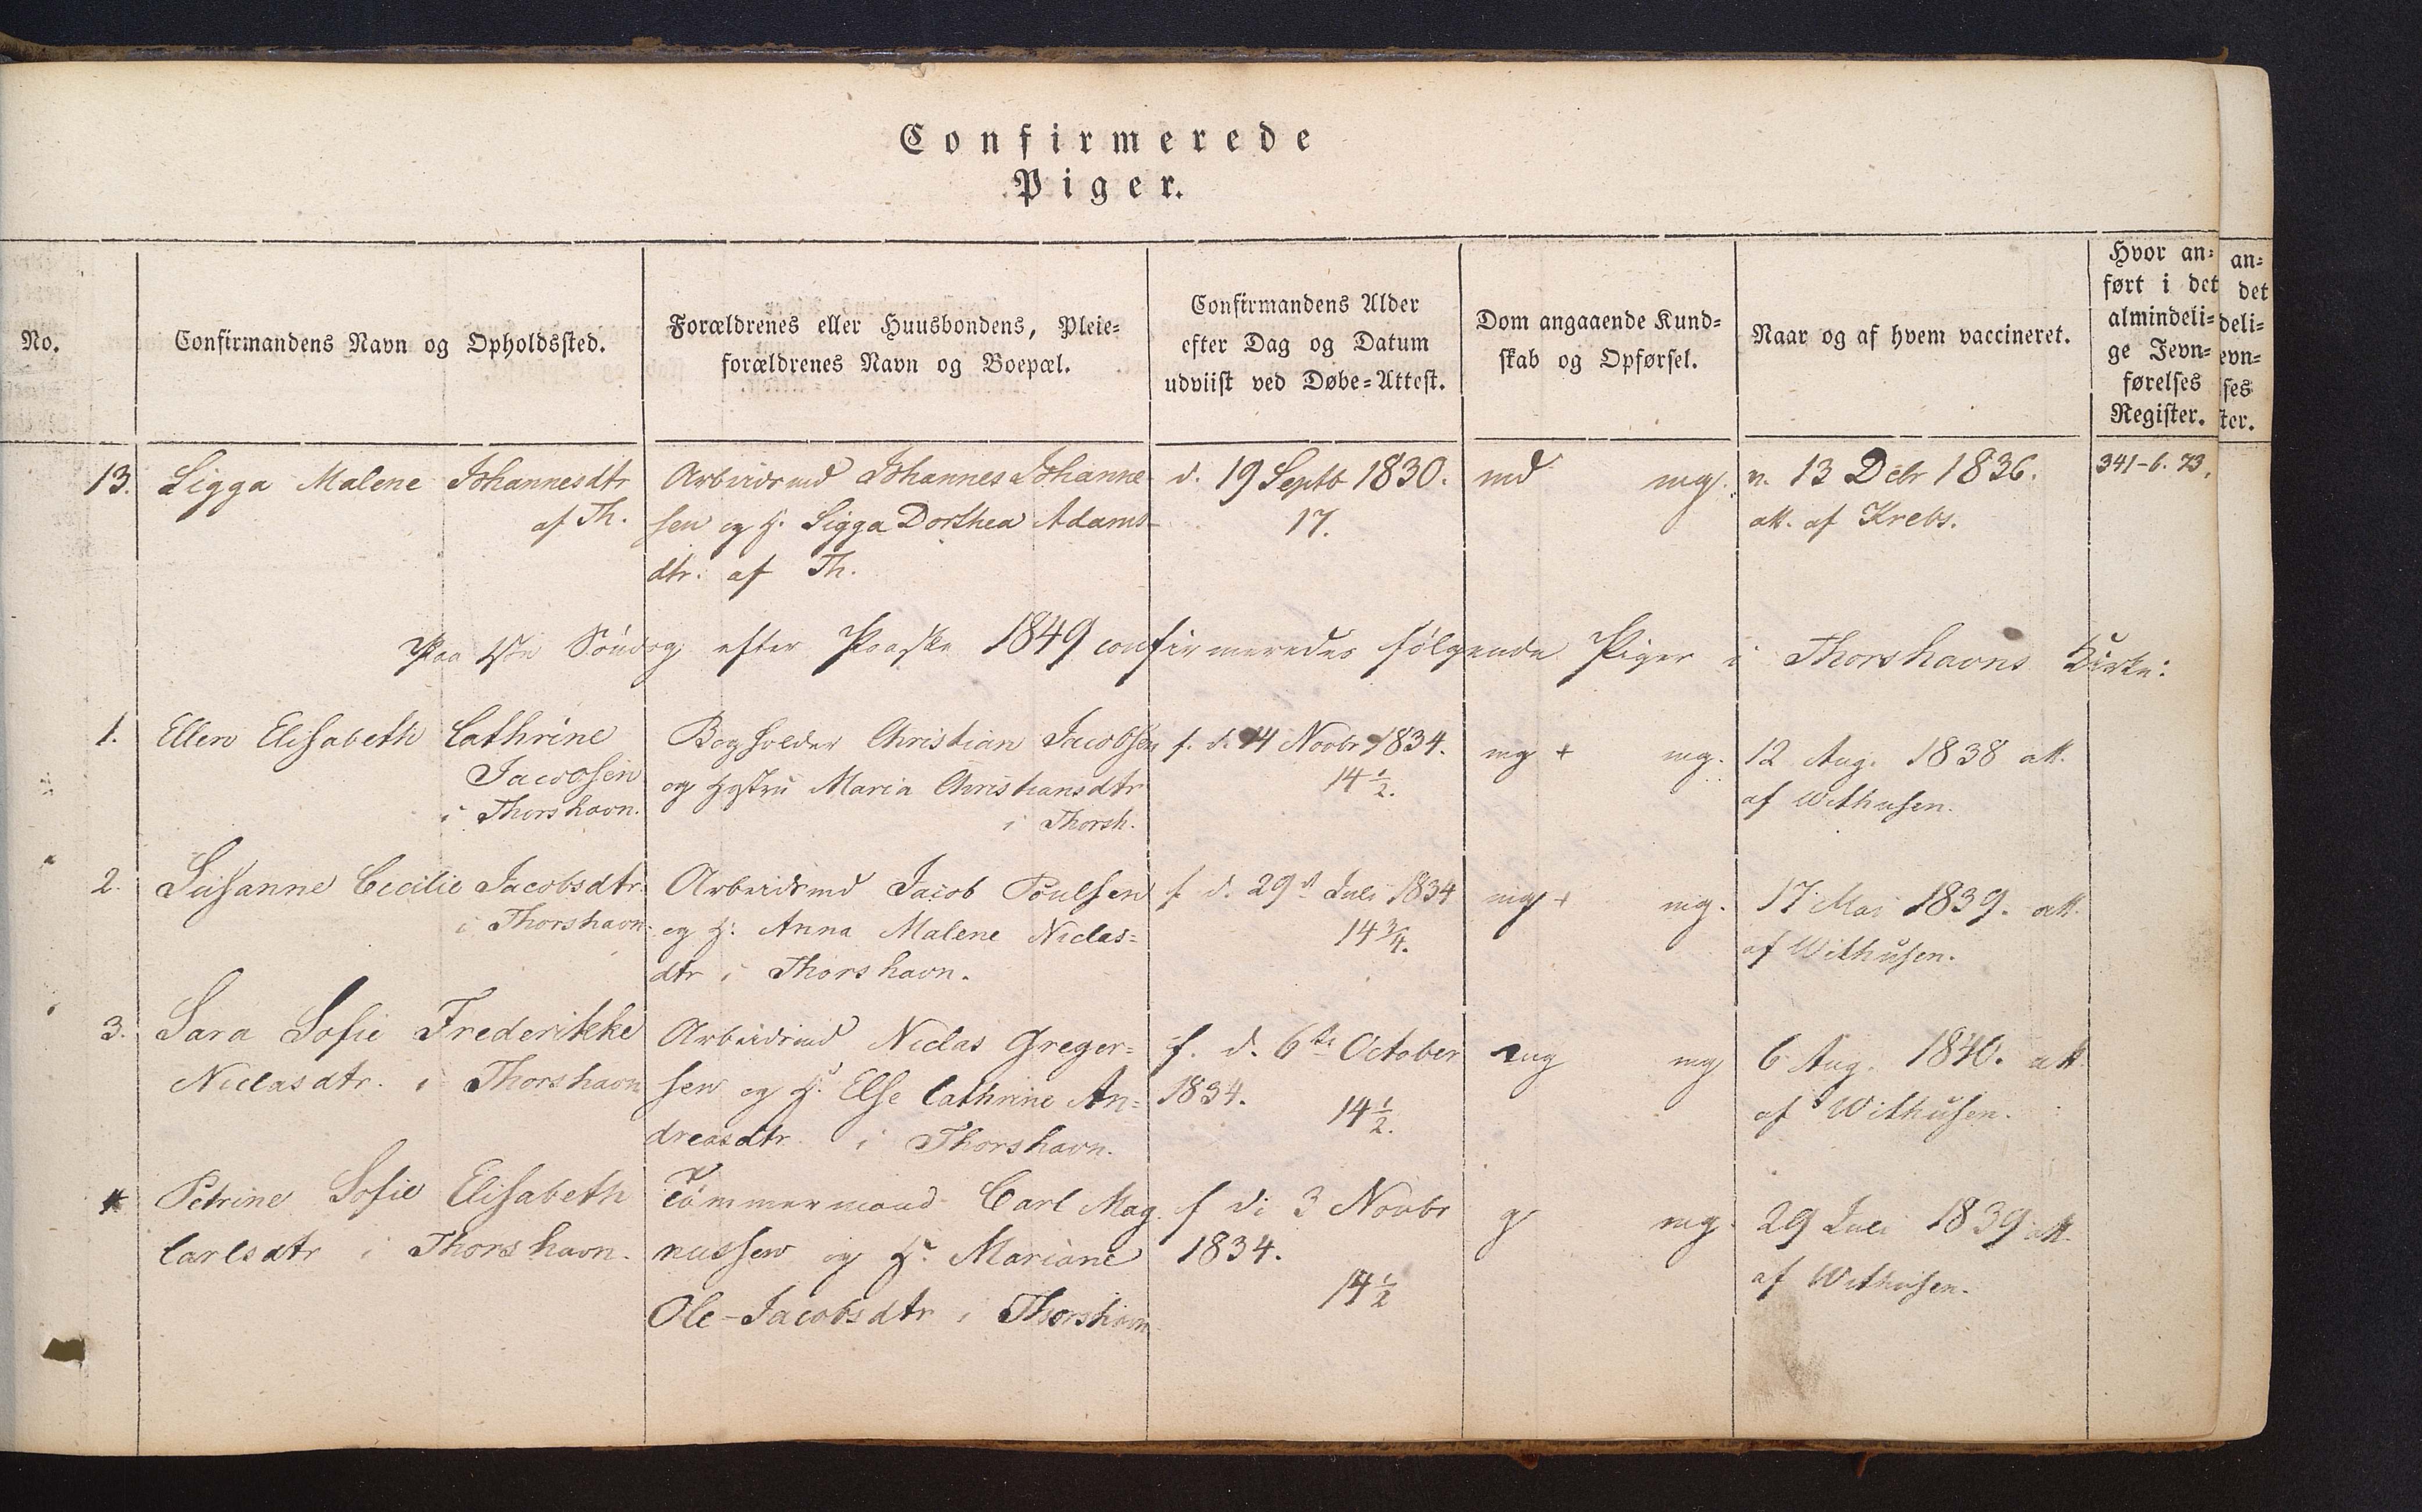 Confirmerede
Piger.
No.
Confirmandens Navn og Opholdssted.
Forældrenes eller Huusbondens, Pleie=
forældrenes Navn og Boepæl.
Confirmandens Alder
efter Dag og Datum
udviist ved Døbe=Attest.
Dom angaaende Kund=
skab og Opførsel.
Naar og af hvem vaccineret.
Hvor an=
ført i det
almindeli=
ge Jevn=
førelses
Register.
an=
det
deli=
evn=
ses
ter.
13. Sigga Malene Johannesdtr
af Th.
Arbeidsmd Johannes Johanne
sen og H. Sigga Dorthea Adams
dtr. af Th.
d. 19 Septb 1830.
17.
md mg.
v. 13 Debr 1836.
att. af Krebs.
341-6. 73.
Paa 1ste Søndag efter Paaske 1849 confirmeredes følgende Piger i Thorshavns Kirke:
1. Ellen Elisabeth Cathrine
Jacobsen
i Thorshavn.
Bogholder Christian Jacobsen
og Hustru Maria Christiansdtr
i Thorsh.
f. d. 14 Novbr 1834.
14 1/2.
mg + mg.
12 Aug. 1838 att.
af Withusen.
2. Susanne Cecilie Jacobsdtr.
i Thorshavn.
Arbeidsmd Jacob Poulsen
og H. Anna Malene Niclas=
dtr i Thorshavn.
f. d. 29 Juli 1834
14 3/4.
mg + mg.
17 Mai 1839. att.
af Withusen.
3. Sara Sofie Frederikke
Niclasdtr. i Thorshavn
Arbeidsmd Niclas Greger=
sen og H. Else Cathrine An=
dreasdtr. i Thorshavn.
f. d. 6te October
1834.
14 1/2.
mg mg
6 Aug. 1840. att.
af Withusen.
4 Petrine Sofie Elisabeth
Carlsdtr i Thorshavn.
Tømmermand Carl Mag
nussen og H. Mariane
Ole-Jacobsdtr i Thorshavn
f. d. 3 Novbr
1834.
14 1/2
g mg.
29 Juli 1839 att.
af Withusen.